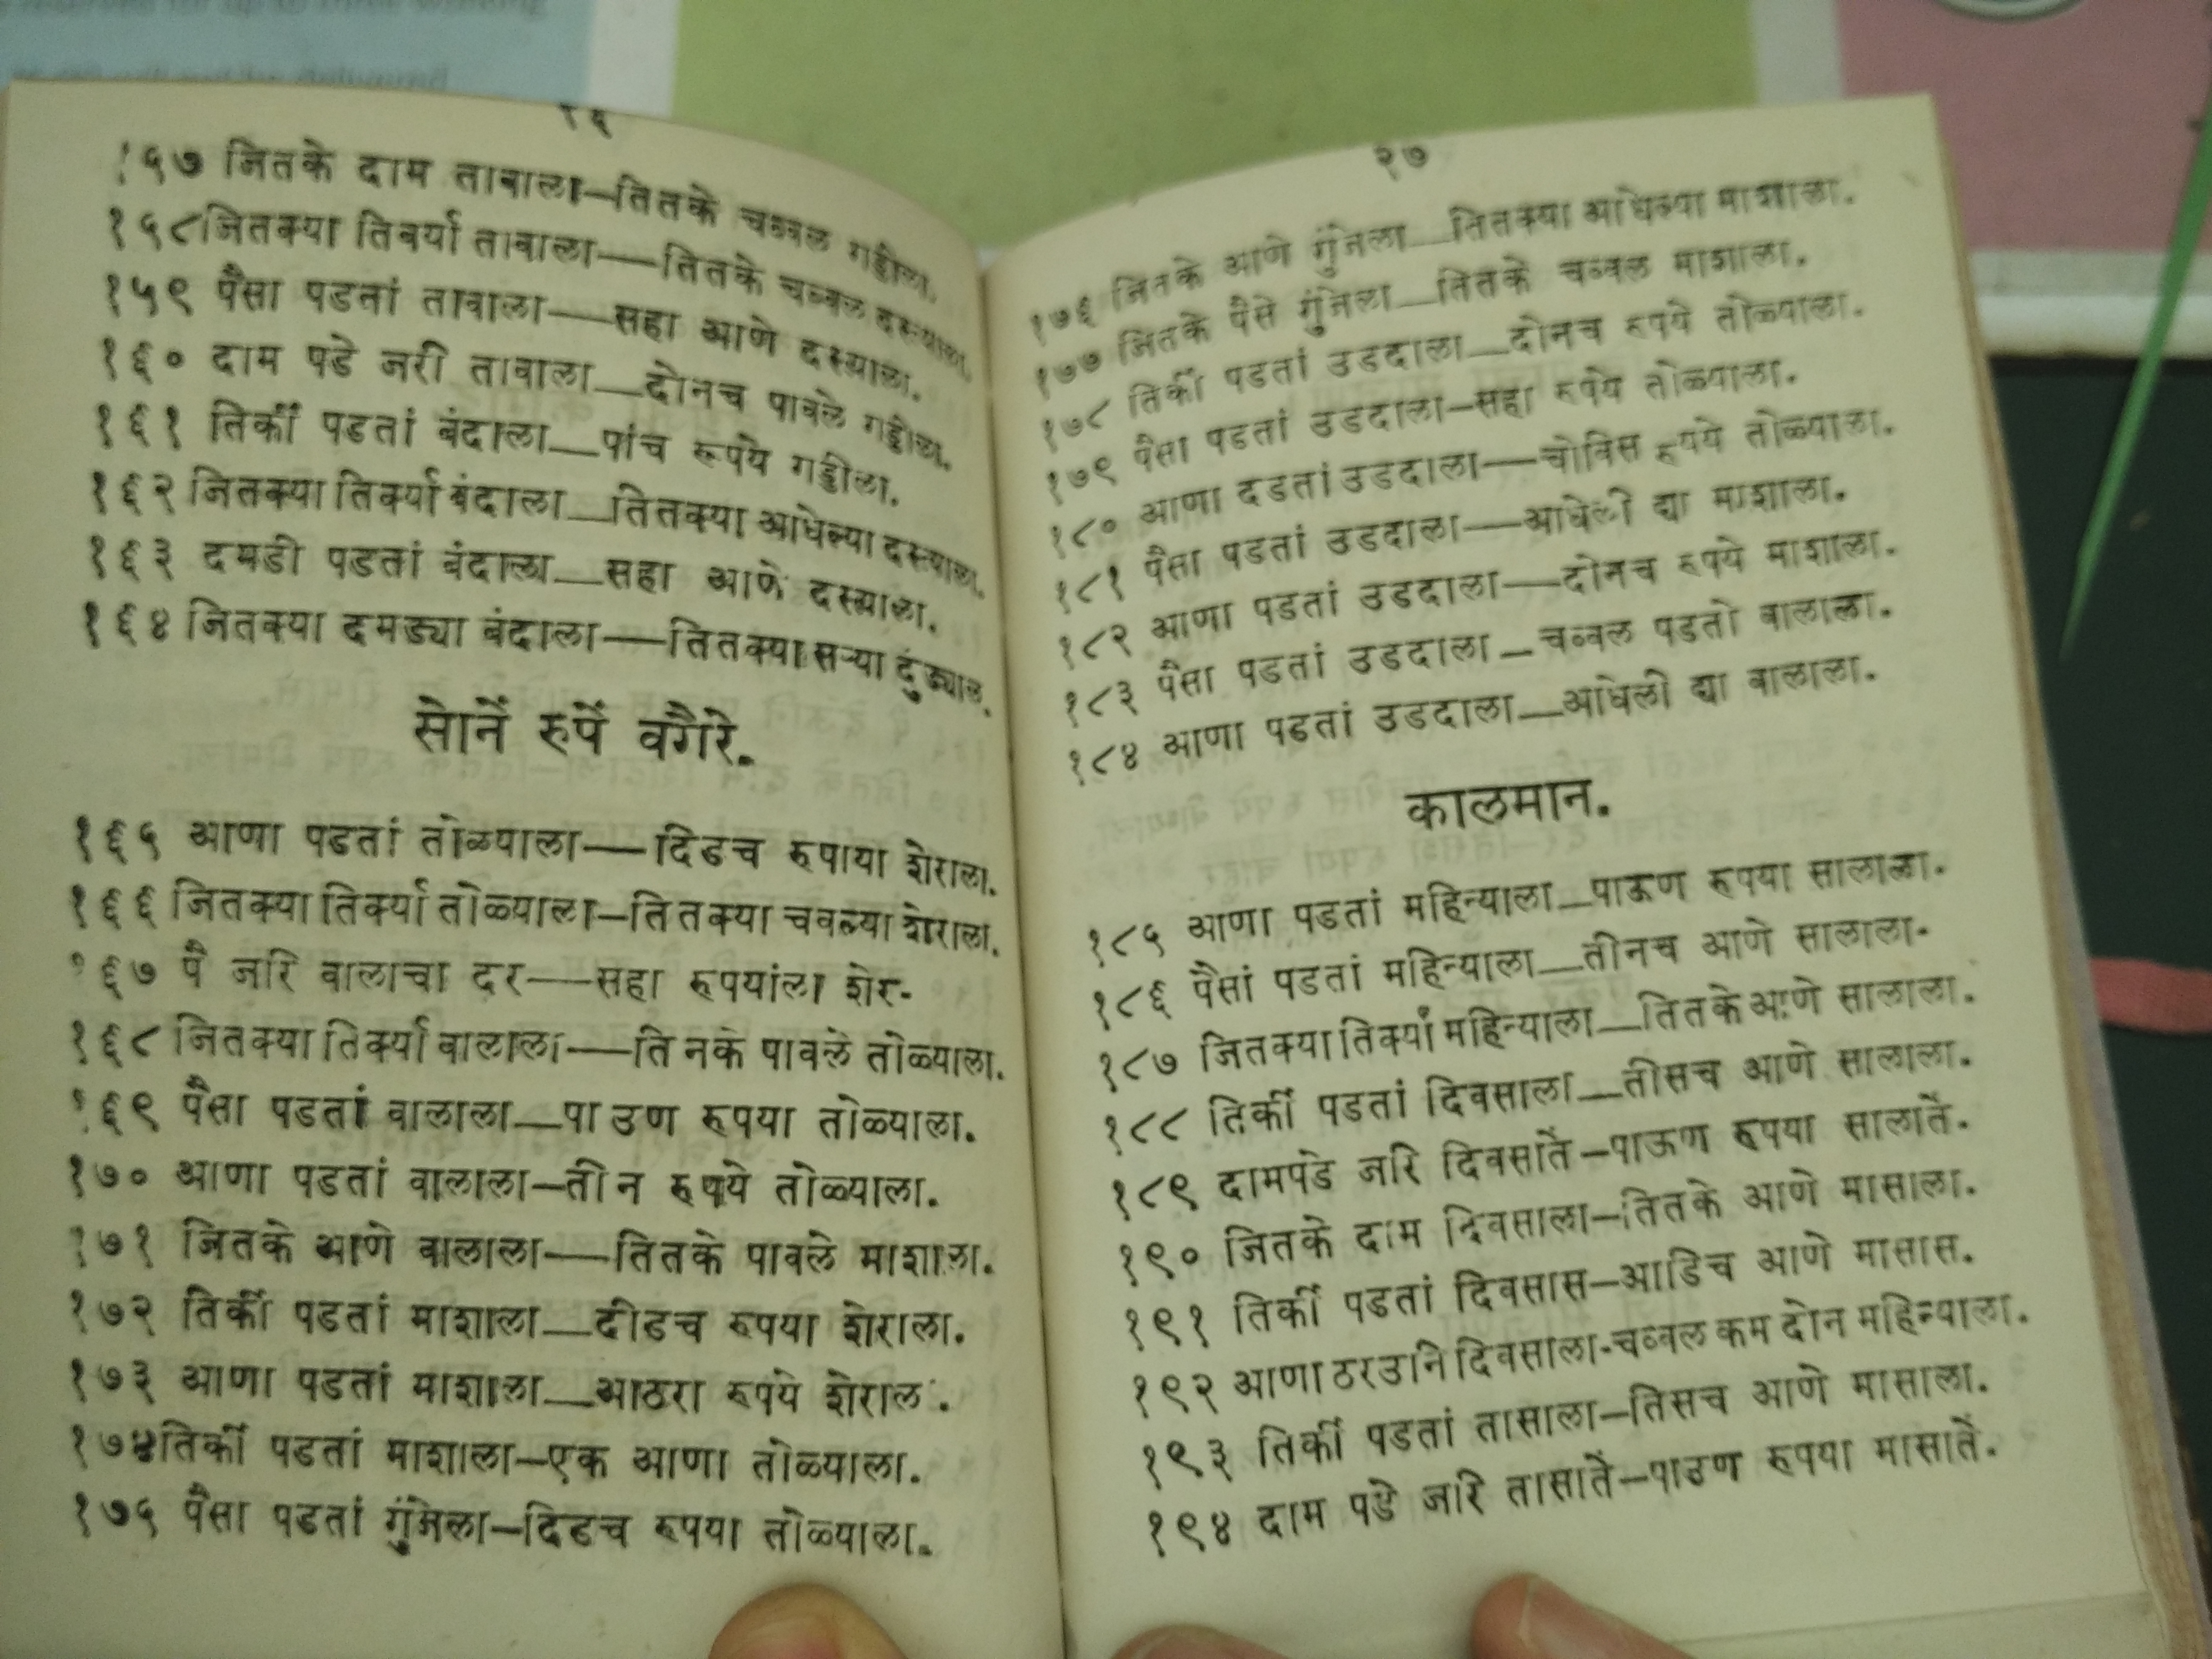 २६
१५७ जितके दाम तावाला—तितके चव्वल गड्डीला.
१५८ जितक्या तिर्क्या तावाला—तितके चव्वल दस्त्याला.
१५९ पैसा पडतां तावाला—सहा आणे दस्त्याला.
१६० दाम पडे जरी तावाला—दोनच पावले गड्डीला.
१६१ तिर्की पडतां बंदाला—पांच रूपये गड्डीला.
१६२ जितक्या तिर्क्या बंदाला—तितक्या आधेल्या दस्त्याला.
१६३ दमडी पडतां बंदाला—सहा आणे दस्त्याला.
१६४ जितक्या दमड्या बंदाला—तितक्या सऱ्या दुंड्याल.
सोनें रुपें वगैरे.
१६५ आणा पडतां तोळ्याला—दिडच रुपाया शेराला.
१६६ जितक्या तिर्क्या तोळ्याला—तितक्या चवल्या शेराला.
१६७ पै जरि वालाचा दर—सहा रुपयांला शेर.
१६८ जितक्या तिर्क्या वालाला—तिनके पावले तोळ्याला.
१६९ पैसा पडतां वालाला—पाउण रुपया तोळ्याला.
१७० आणा पडतां वालाला—तीन रुपये तोळ्याला.
१७१ जितके आणे वालाला—तितके पावले माशाला.
१७२ तिर्की पडतां माशाला—दीडच रुपया शेराला.
१७३ आणा पडतां माशाला—आठरा रुपये शेराल.
१७४ तिर्की पडतां माशाला—एक आणा तोळ्याला.
१७५ पैसा पडतां गुंजेला—दिडच रुपया तोळ्याला.
२७
१७६ जितके आणे गुंजेला—तितक्या आधेल्या माशाला.
१७७ जितके पैसे गुंजेला—तितके चव्वल माशाला.
१७८ तिर्की पडतां उडदाला—दोनच रुपये तोळ्याला.
१७९ पैसा पडतां उडदाला—सहा रुपये तोळ्याला.
१८० आणा दडतां उडदाला—चोविस रुपये तोळ्याला.
१८१ पैसा पडतां उडदाला—आधेली द्या माशाला.
१८२ आणा पडतां उडदाला—दोनच रुपये माशाला.
१८३ पैसा पडतां उडदाला—चव्वल पडतो वालाला.
१८४ आणा पडतां उडदाला—आधेली द्या वालाला.
कालमान.
१८५ आणा पडतां महिन्याला—पाऊण रुपया सालाला.
१८६ पैसां पडतां महिन्याला—तीनच आणे सालाला.
१८७ जितक्या तिर्क्या महिन्याला—तितके आणे सालाला.
१८८ तिर्की पडतां दिवसाला—तीसच आणे सालाला.
१८९ दामपडे जरि दिवसातें—पाऊण रुपया सालातें.
१९० जितके दाम दिवसाला—तितके आणे मासाला.
१९१ तिर्की पडतां दिवसास—आडिच आणे मासास.
१९२ आणा ठरउनि दिवसाला-चव्वल कम दोन महिन्याला.
१९३ तिर्की पडतां तासाला—तिसच आणे मासाला.
१९४ दाम पडे जरि तासातें—पाउण रुपया मासातें.